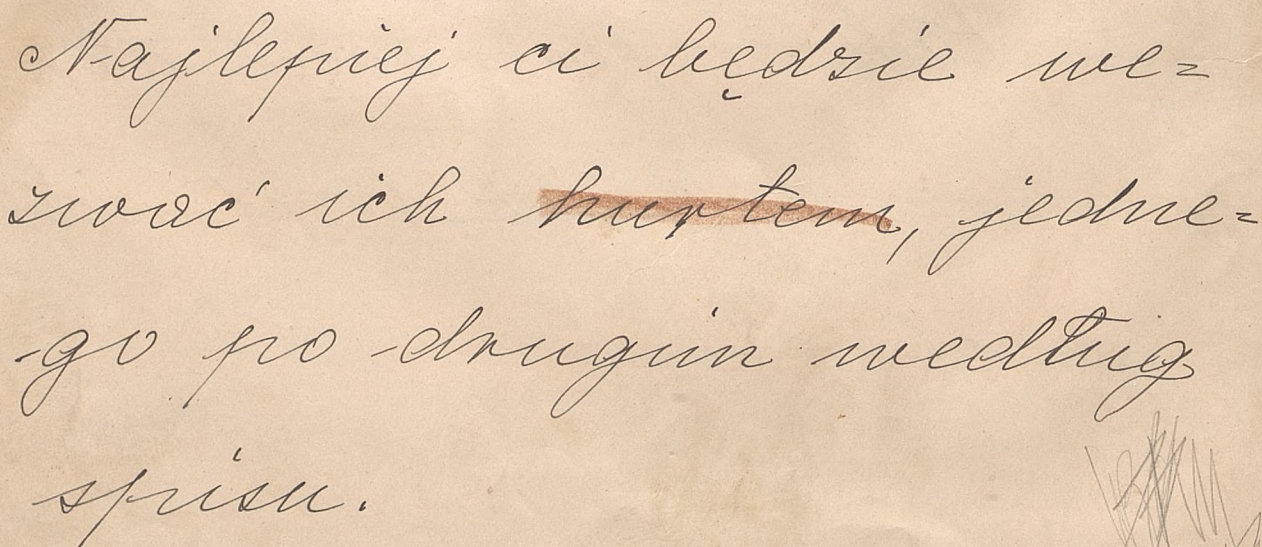 Najlepiej ci będzie we=
zwać ich hurtem, jedne=
go po drugim według
spisu.